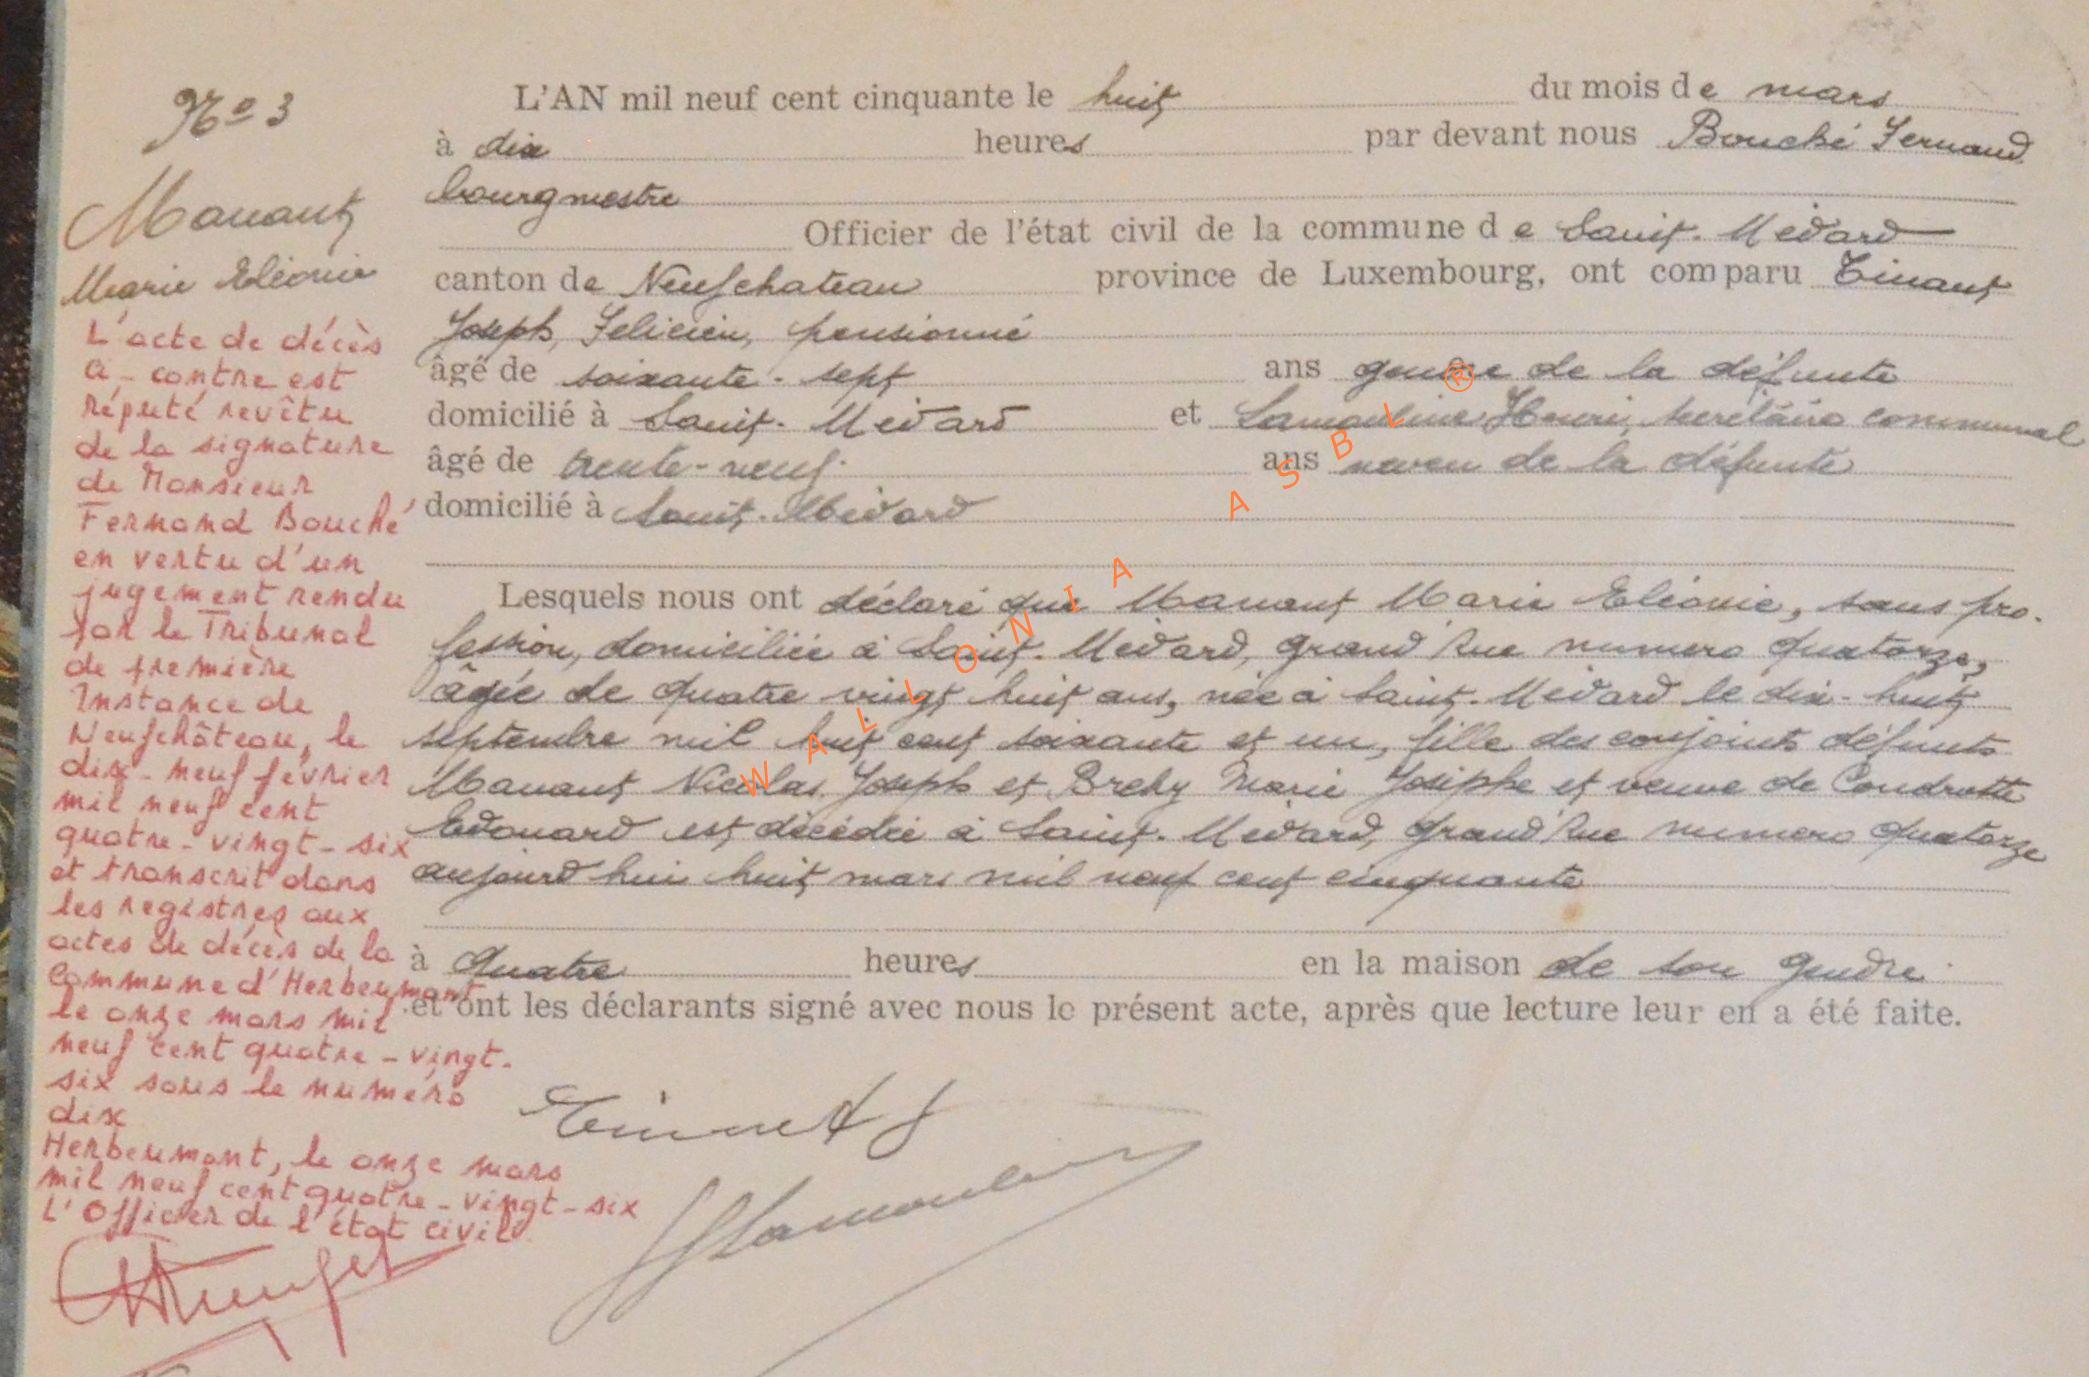 Nº 3
Manant
Marie Eléonie
L'acte de décès
ci-contre est
réputé revêtu
de la signature
de Monsieur
Fernand Bouché
en vertu d'un
jugement rendu
par le Tribunal
de première
Instance de
Neufchâteau, le
dix-neuf février
mil neuf cent
quatre-vingt-six
et transcrit dans
les registres aux
actes de décès de la
Commune d'Herbeumont
le onze mars mil
neuf cent quatre-vingt-
six sous le numéro
dix
Herbeumont, le onze mars
mil neuf cent quatre-vingt-six
L'Officier de l'état civil
L'AN mil neuf cent cinquante le huit du mois de mars
à dix heures par devant nous Bouché Fernand
bourgmestre
Officier de l'état civil de la commune de Saint-Médard
canton de Neufchateau province de Luxembourg, ont comparu Tinant
Joseph, Felicien, pensionné
âgé de soixante-sept ans gendre de la défunte
domicilié à Saint-Médard et Lamouline Henri, secrétaire communal
âgé de trente-neuf ans neveu de la défunte
domicilié à Saint-Médard
Lesquels nous ont déclaré que Manant Marie Eléonie, sans pro-
fession, domiciliée à Saint-Médard, grand'Rue numero quatorze,
âgée de quatre vingt huit ans, née à Saint-Médard le dix-huit
septembre mil huit cent soixante et un, fille des conjoints défunts
Manant Nicolas Joseph et Brehy Marie Josèphe et veuve de Condrotte
Edouard est décédée à Saint-Médard, grand'Rue numero quatorze
aujourd'hui huit mars mil neuf cent cinquante
à quatre heures en la maison de son gendre
et ont les déclarants signé avec nous le présent acte, après que lecture leur en a été faite.
Tinant J
HLamouline
WALLONIA ASBL ®